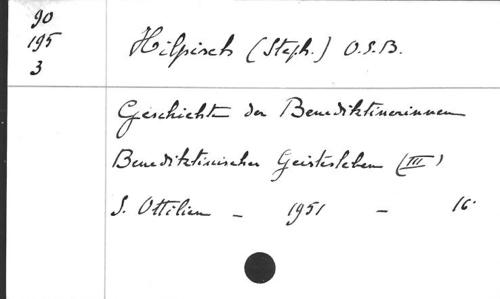 90
195
3
Hilpisch (Steph.) O.S.B.
Geschichte der Benediktinerinnen
Benediktinischer Geistesleben (III)
S. Ottilien - 1951 - 16°